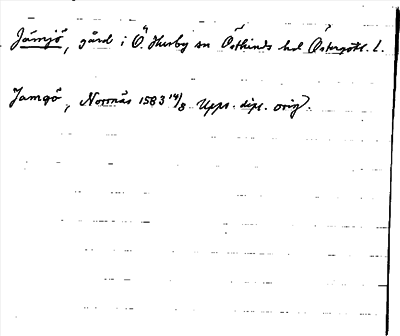 Jämjö, gård i Ö. Husby sn Östkinds hd Östergötl. l.
Jamgö, Norrnäs 1583 14/8 Upps. dipl. orig.